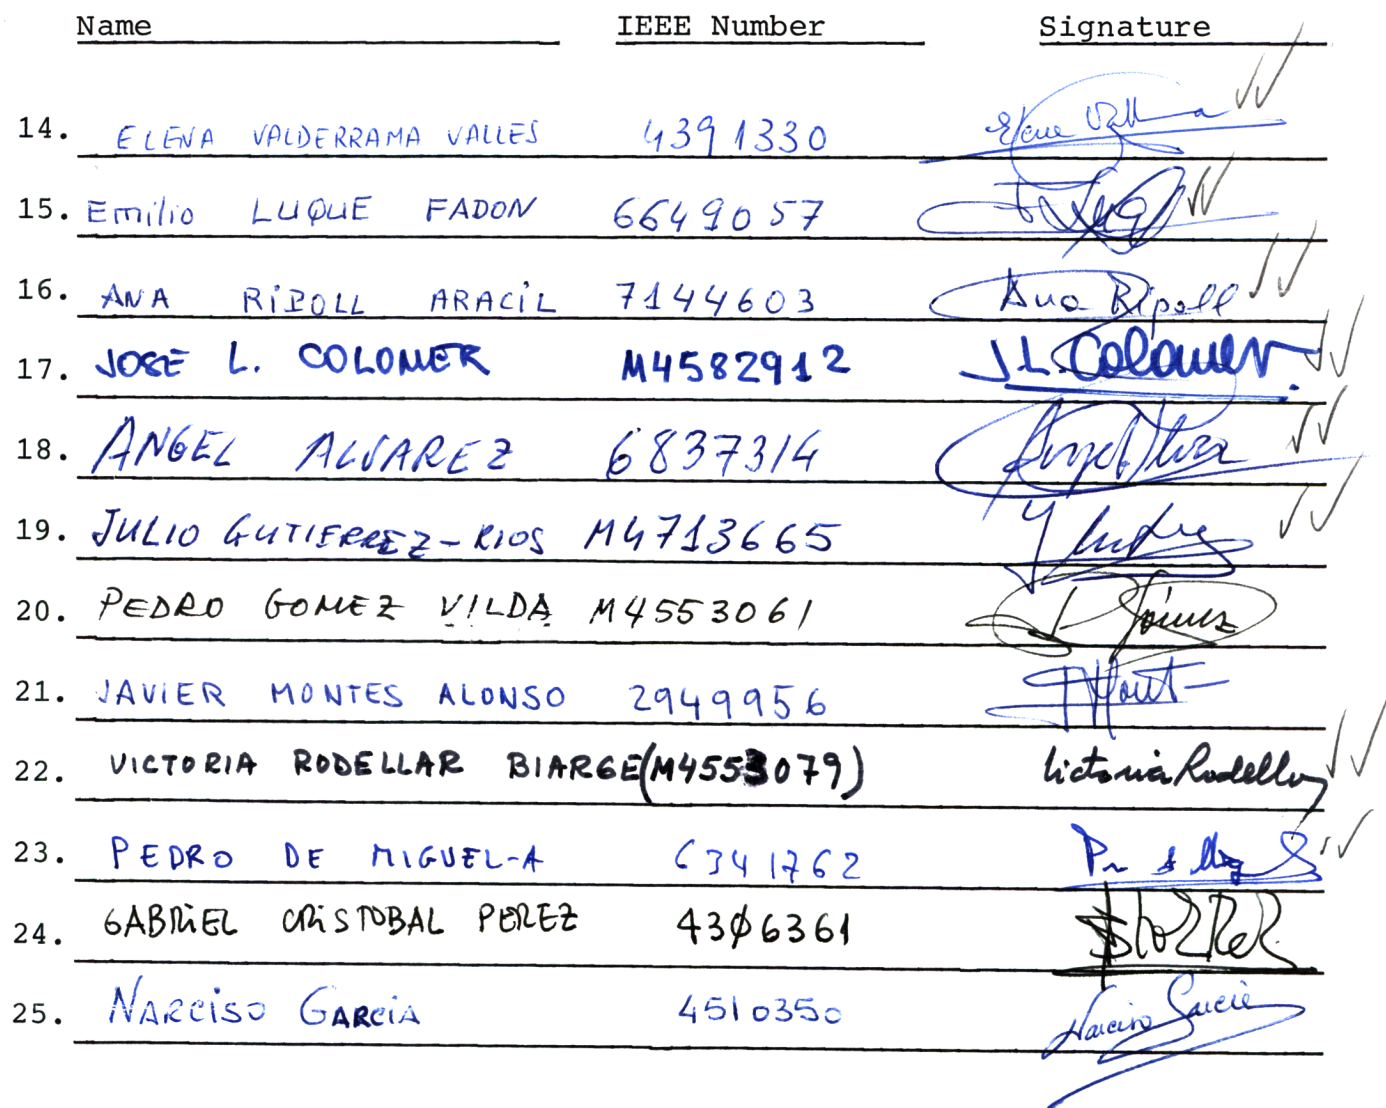 Name IEEE Number Signature
14. ELENA VALDERRAMA VALLES 4391330
15. Emilio LUQUE FADON 6649057
16. ANA RIPOLL ARACIL 7144603 Ana Ripoll
17. JOSE L. COLOMER M4582912 J.L. Colomer
18. ANGEL ALVAREZ 6837314
19. JULIO GUTIERREZ-RIOS M4713665
20. PEDRO GOMEZ VILDA M4553061 P. Gómez
21. JAVIER MONTES ALONSO 2949956
22. VICTORIA RODELLAR BIARGE (M4553079) Victoria Rodellar
23. PEDRO DE MIGUEL-A 6341762
24. GABRIEL CRISTOBAL PEREZ 4306361
25. NARCISO GARCIA 4510350 Narciso García